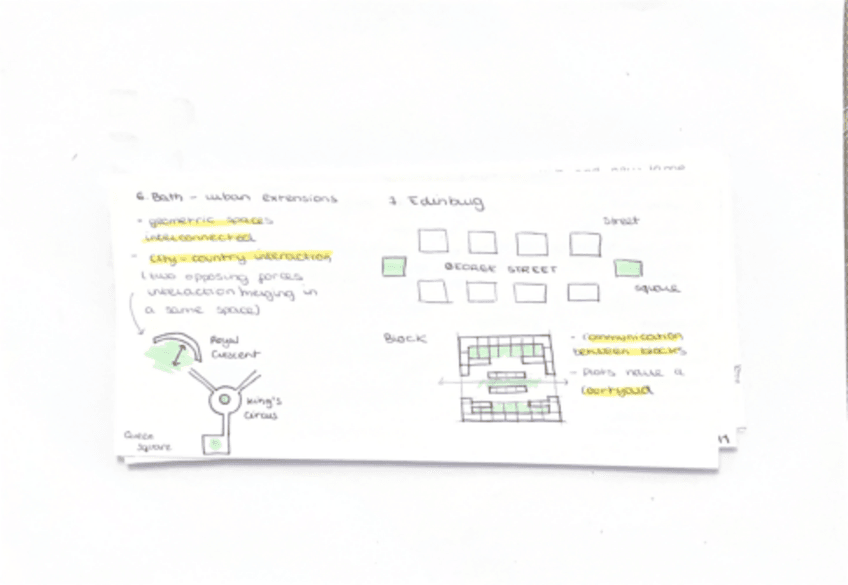 6. Bath - urban extensions
- geometric spaces
interconnected
- city-country interaction
(two opposing forces
interaction/merging in
a same space)
Royal
Crescent
King's
Circus
Queen
Square
7. Edinburg
Street
GEORGE STREET
square
Block
- Communication
between blocks
- Plots have a
courtyard